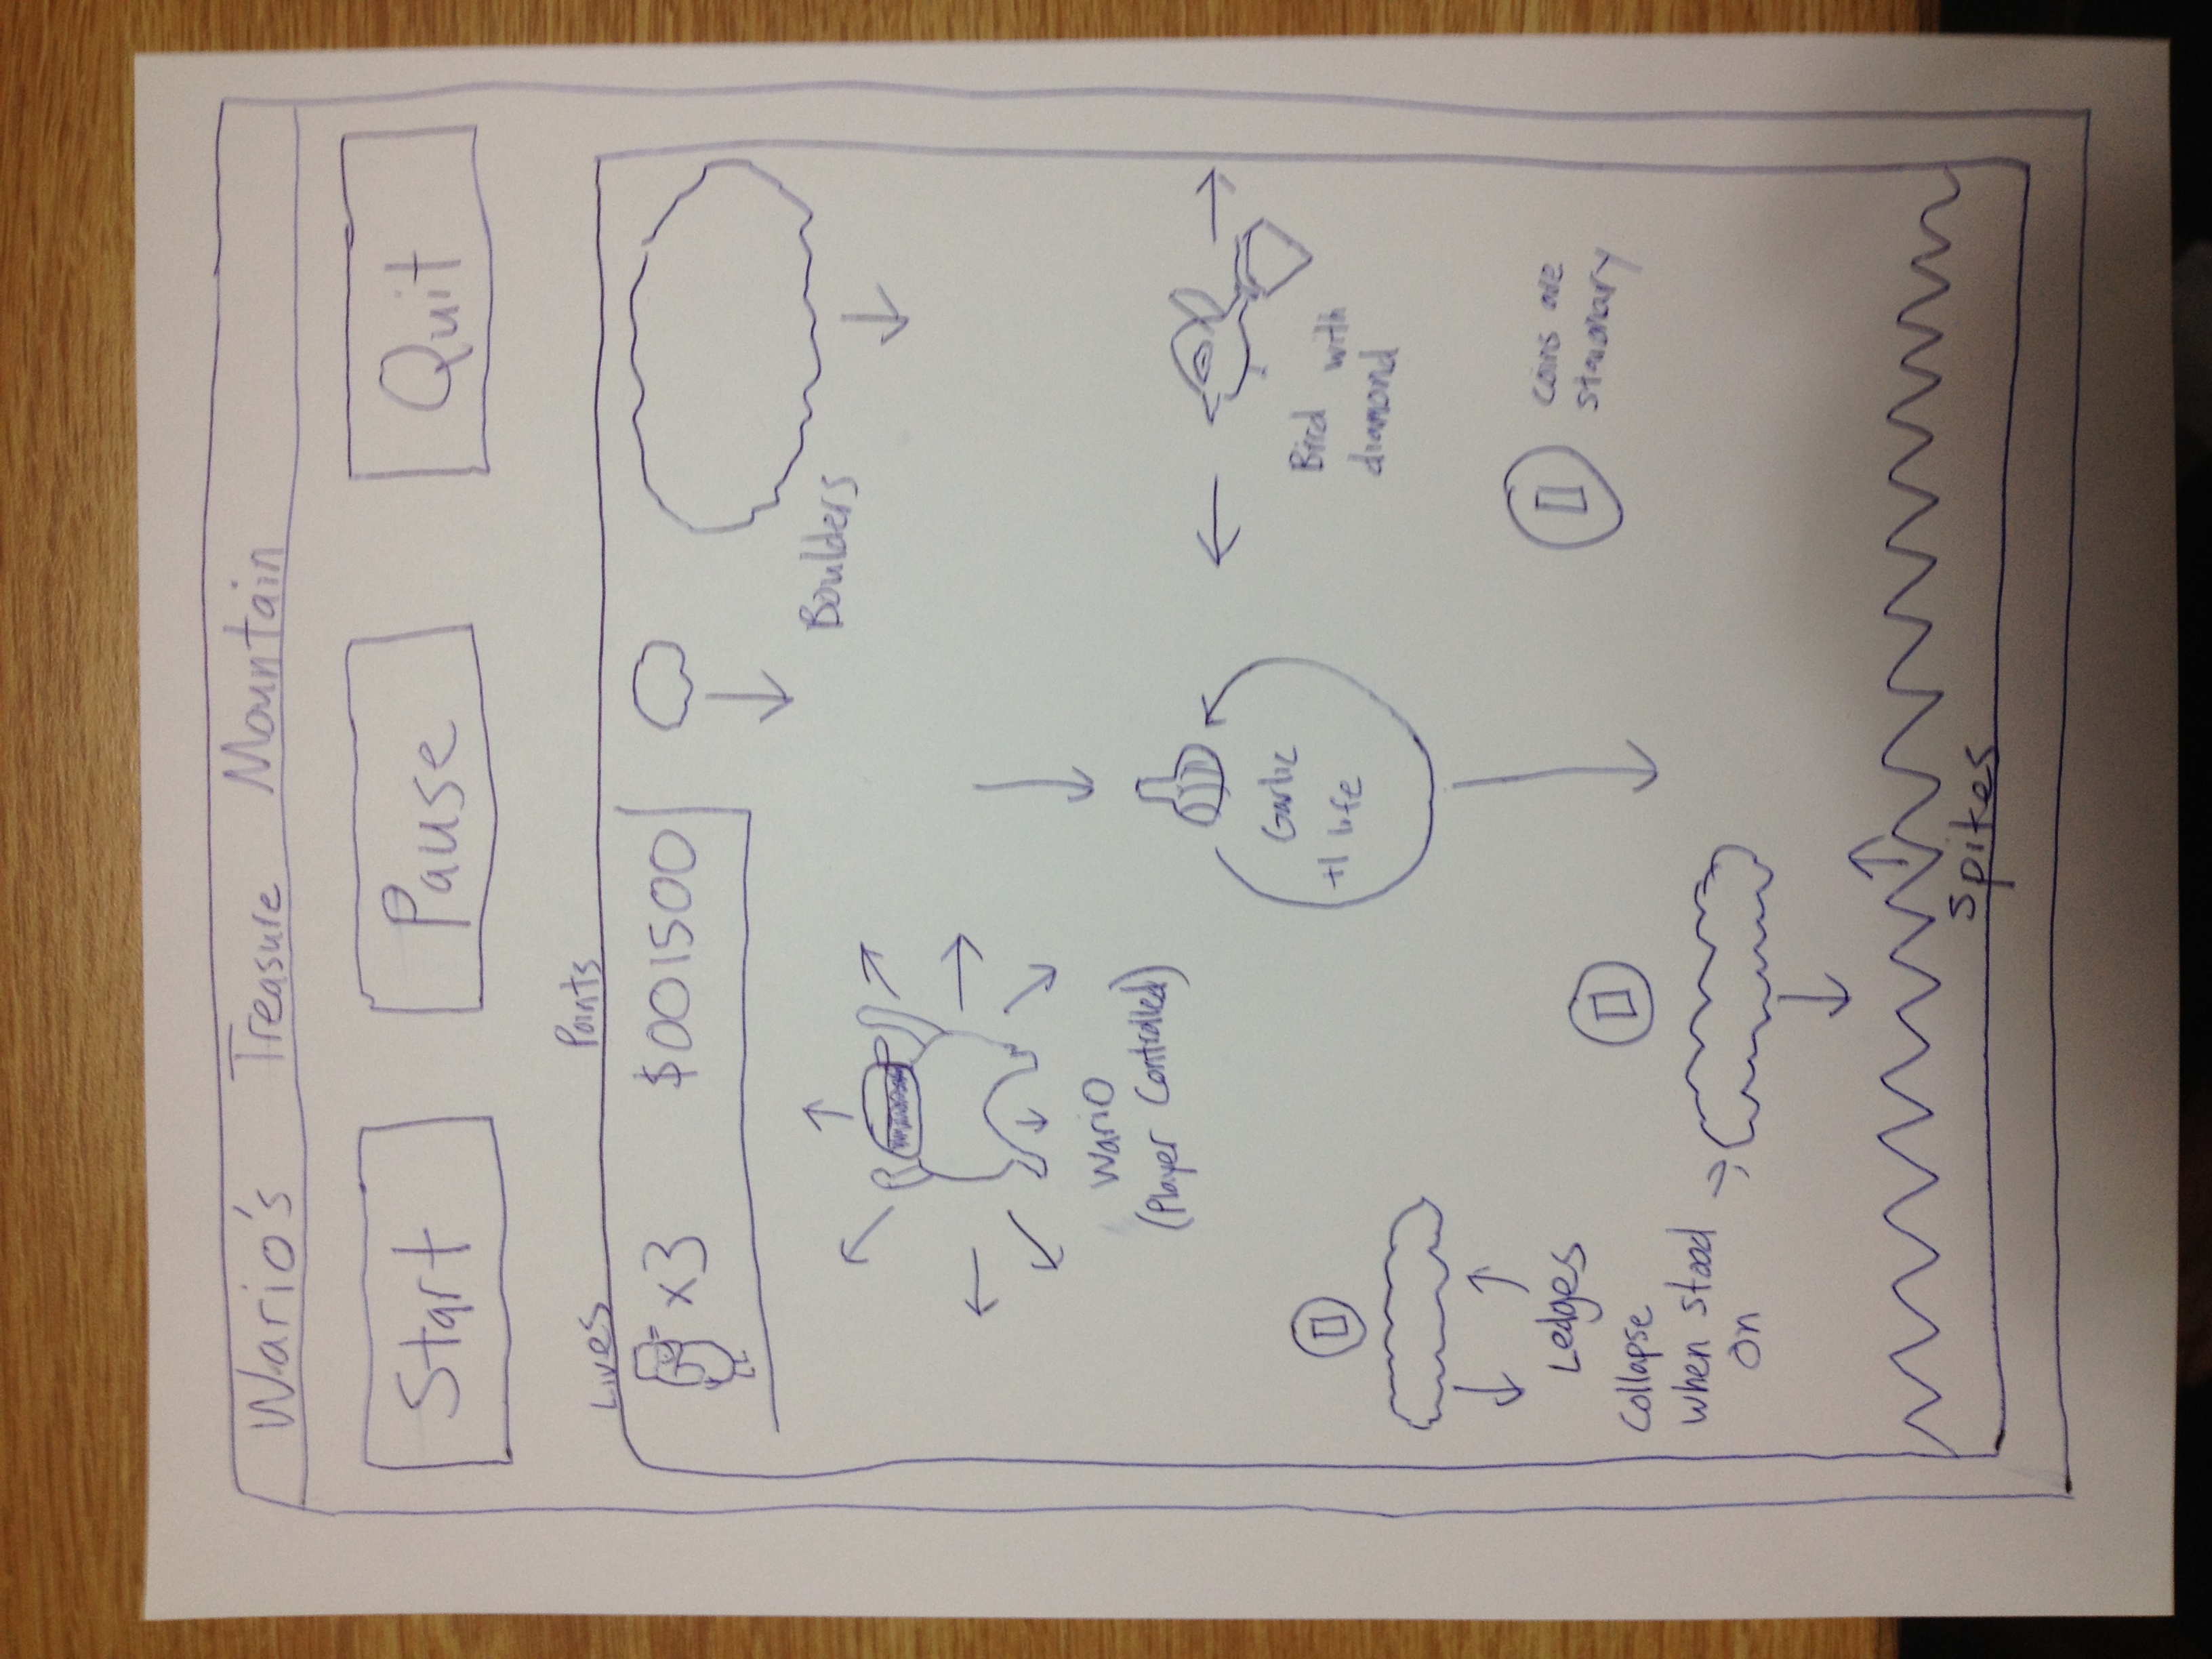 Wario's Treasure Mountain
Start Pause Quit
Lives Points
x3 $001500
Boulders
Wario
(Player Controlled)
Garlic
+1 life
Bird with
diamond
Ledges
Collapse
when stood
on
Coins are
stationary
Spikes